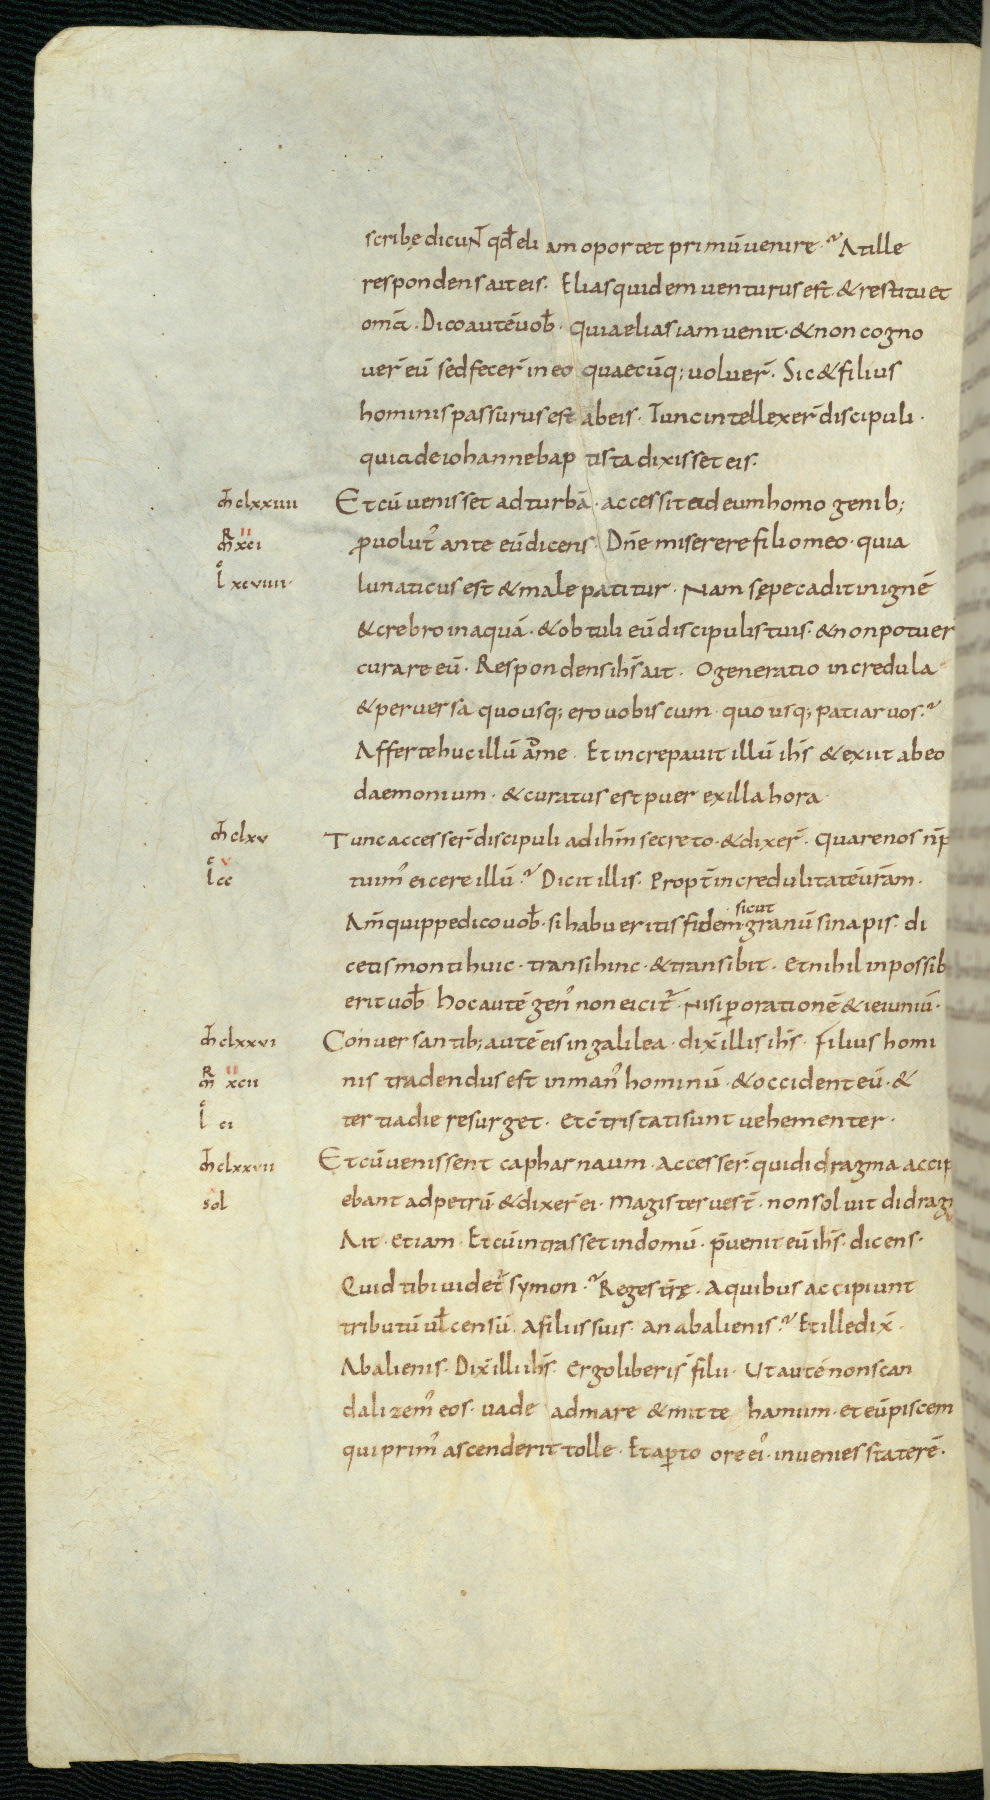 scribę dicuNT̄ qd̄ eliam oportet primū venire. At ille
respondens ait eis. Elias quidem venturus est & restituet
om̄a. Dico autē vob̄. quia elias iam venit. & non cogno
uer̄ eū sed fecer̄ in eo quaecūq; voluer̄. Sic & filius
hominis passurus est ab eis. Tunc intellexer̄ discipuli.
quia de iohanne baptista dixisset eis.
m̄ clxxiiii Et cū venisset ad turbā. accessit ad eum homo genib;
R m̄ xci II ꝓvolut᾽ ante eū dicens. Dn̄e miserere filio meo. quia
l xcviiii. lunaticus est & male patitur. Nam sępe cadit in ignē
& crebro in aquā. & obtuli eū discipulis tuis. & non potuer
curare eū. Respondens ih̄s ait. O generatio incredula
& perversa quo usq; ero vobiscum. quo usq; patiar vos.
Afferte huc illū ad me. Et increpavit illū ih̄s & exiit ab eo
daemonium. & curatus est puer ex illa hora.
m̄ clxv Tunc accesser̄ discipuli ad ih̄m secreto. & dixer̄. Quare nos n̄ p
l cc v tuim᾽ eicere illū. Dicit illis. Propt̄ incredulitatē vr̄am.
Am̄ quippe dico vob̄. si habueritis fidem sicut granū sinapis. di
cetis monti huic. transi hinc. & transibit. et nihil inpossib
erit vob̄. hoc autē gen᾽ non eicit᾽. Nisi ꝑ orationē & ieiuniū.
m̄ clxxvi Conversantib; autē eis in galilea. dix̄ illis ih̄s. Filius homi
R m̄ xcii II nis tradendus est in man᾽ hominū. & occident eū. &
l ci tertia die resurget. et c̄tristati sunt vehementer.
m̄ clxxvii Et cū venissent capharnaum. accesser̄. qui didragma accip
sol ebant ad petrū & dixer̄ ei. Magister vest̄. non solvit didrag
Ait. etiam. Et cū intrasset in domū. p̄venit eū ih̄s. dicens.
Quid tibi videt᾽ symon. Reges tr̄ę. a quibus accipiunt
tributū vl̄ censū. a filiis suis. an ab alienis. Et ille dix̄.
Ab alienis. Dix̄ illi ih̄s. Ergo liberi s̄ filii. Ut autē non scan
dalizem᾽ eos. vade ad mare & mitte hamum. et eū piscem
qui prim᾽ ascenderit tolle. Et aꝑto ore ei᾽. invenies staterē.